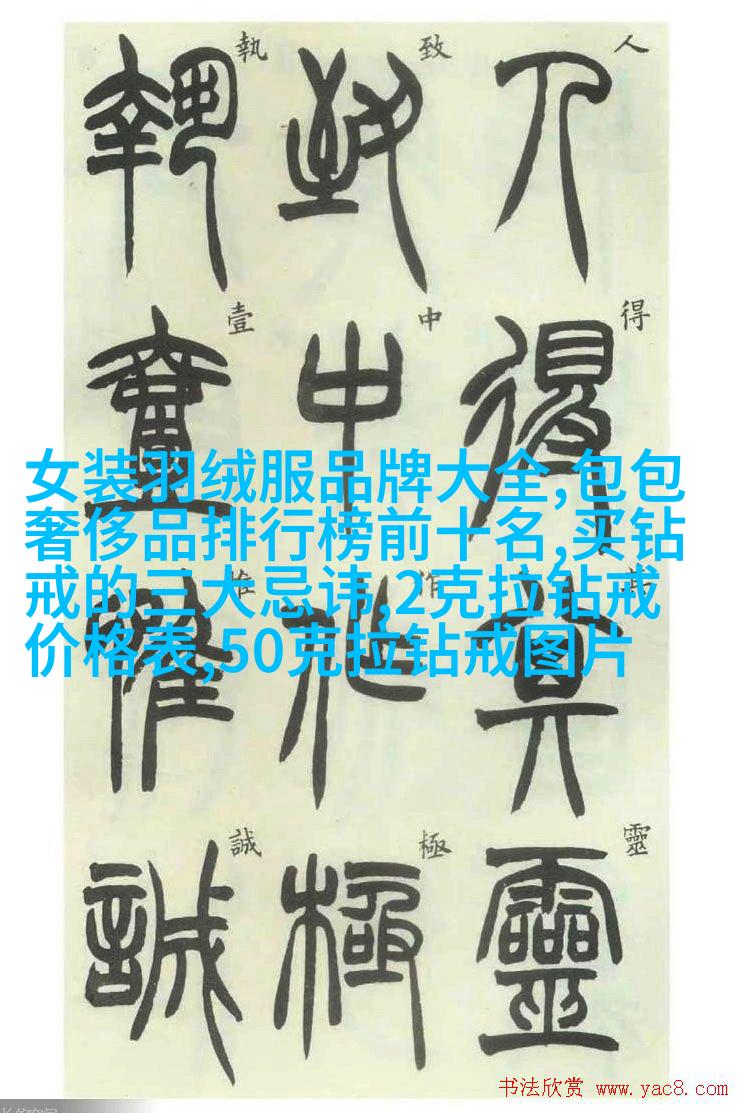 人得其靈
人得其靈
致中作極
致中作極
執壹惟誠
執壹惟誠
女装羽绒服品牌大全,包包
奢侈品排行榜前十名,买钻
戒的三大忌讳,2克拉钻戒
价格表,50克拉钻戒图片
书法欣赏 www.yac8.com